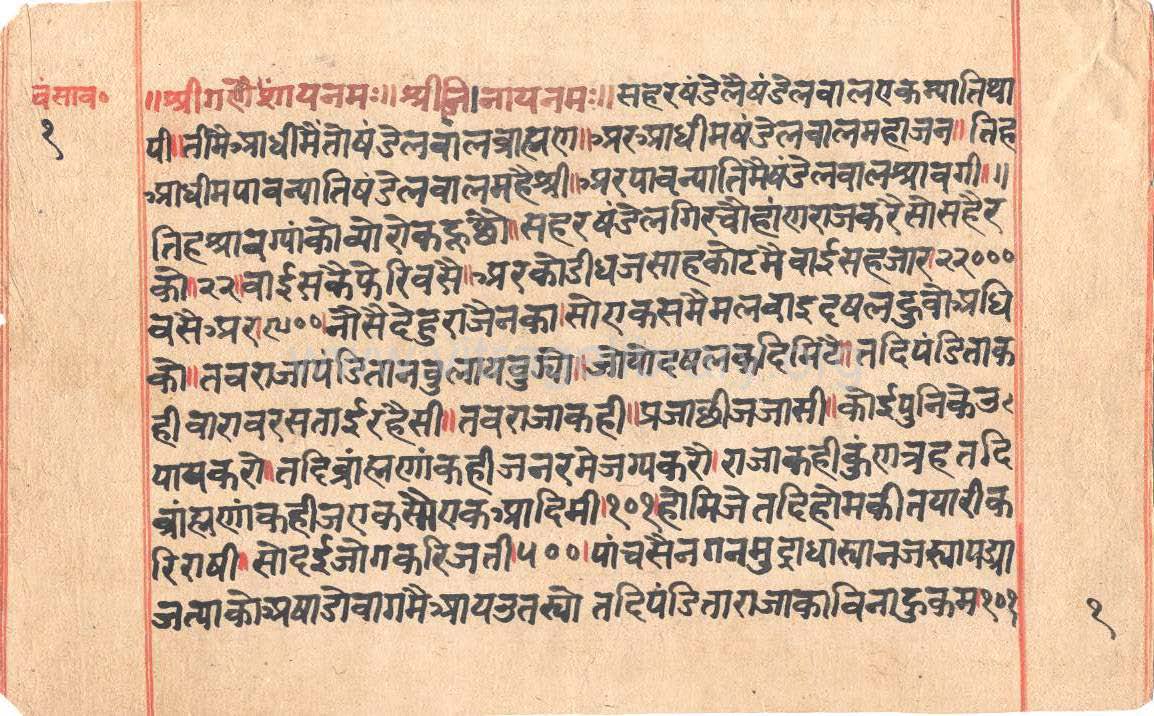 वंसाव॰
१
॥श्रीगणेशायनमः॥श्रीजिनायनमः॥सहरषंडेलैषंडेलवालएकन्यातिथा
पी॥तींमैआधीमैंतोषंडेलवालब्राह्मण॥अरआधीमषंडेलवालमहाजन॥तिह
आधीमपावन्यातिषंडेलवालमहैश्री॥अरपावन्यातिमैषंडेलवालश्रावगी॥॥
तिहश्रावग्यांकोव्योरोकहूछौ॥सहरषंडेलगिरचौहांणराजकरैसोसहैर
कौ॥२२॥वाईसकैफेरिवसै॥अरकोडीधजसाहकोटमैवाईसहजार॥२२०००
वसैअर॥९००॥नौसैदेहुराजैनका॥सोएकसमैमलवाइदषलहुवोअधि
को॥तवराजापंडितानवुलायवुज्यो॥जोयादषलकदिमिटै॥तदिपंडिताक
हीवारावरसताईरहैसी॥तवराजाकही॥प्रजाछीजजासी॥कोईपुनिकैउ
पायकरो॥तदिब्रांह्मणांकहीजनरमेजग्यकरौ॥राजाकहीकुंणत्रहतदि
ब्रांह्मणांकहीजएकसौएकआदिमी॥१०१॥होमिजेतदिहोमकीतयारीक
रिराषी॥सोदईजोगकरिजती॥५००॥पांचसैनगनमुद्राधास्यानजस्यापद्या
जत्याकोअषाडोवागमैआयउतस्यो तदिपंडिताराजाकाविनाहुकम॥१०१
१